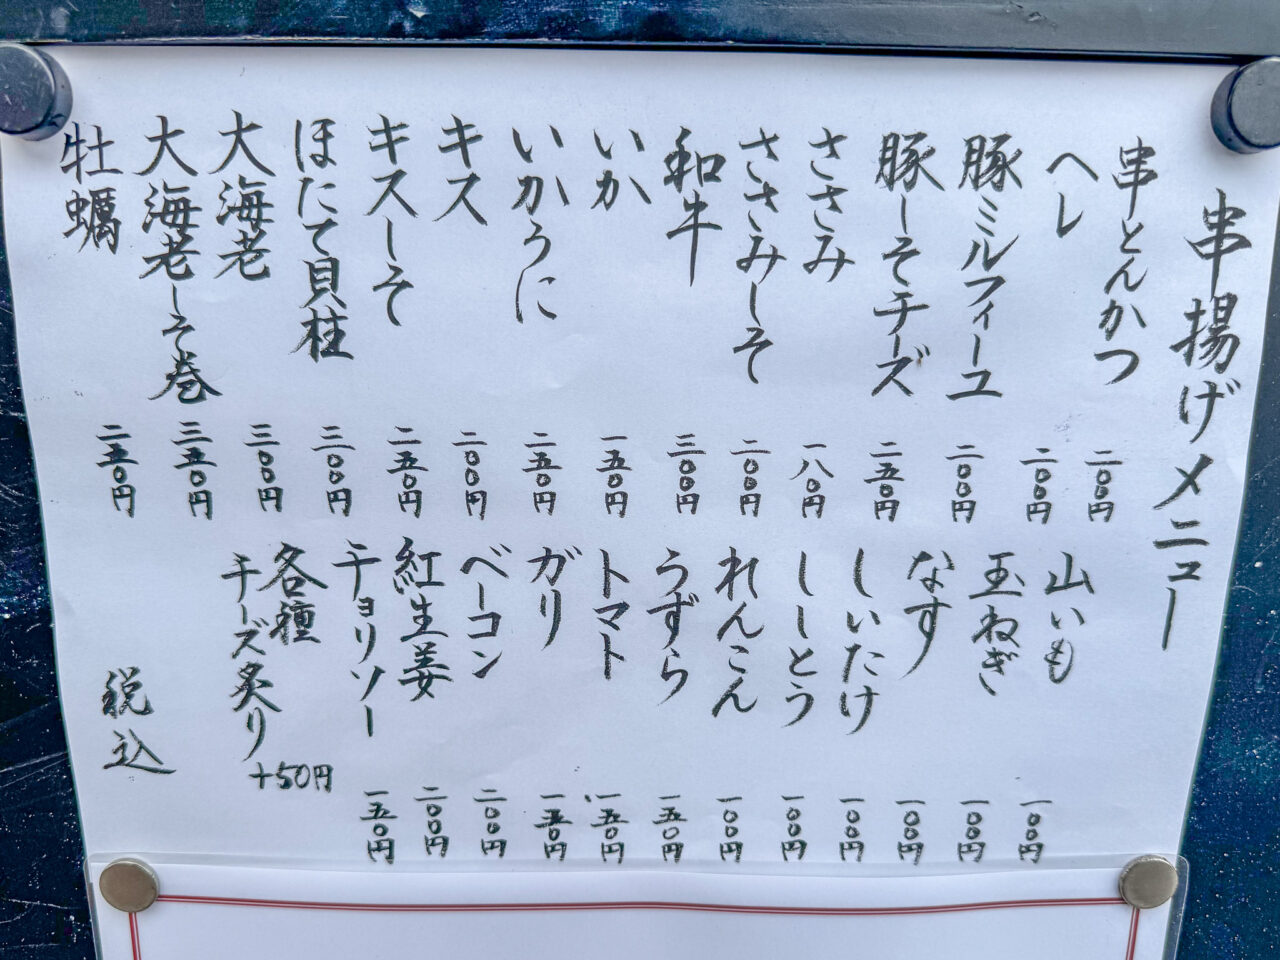 串揚げメニュー
串とんかつ 二〇〇円
ヘレ 二〇〇円
豚ミルフィーユ 二〇〇円
豚しそチーズ 二五〇円
ささみ 一八〇円
ささみしそ 二〇〇円
和牛 三〇〇円
いか 一五〇円
いかうに 二五〇円
キス 二〇〇円
キスしそ 二五〇円
ほたて貝柱 三〇〇円
大海老 三〇〇円
大海老しそ巻 三五〇円
牡蠣 二五〇円
山いも 一〇〇円
玉ねぎ 一〇〇円
なす 一〇〇円
しいたけ 一〇〇円
ししとう 一〇〇円
れんこん 一〇〇円
うずら 一五〇円
トマト 一五〇円
ガリ 一五〇円
ベーコン 二〇〇円
紅生姜 二〇〇円
チョリソー 一五〇円
各種
チーズ炙り +50円
税込